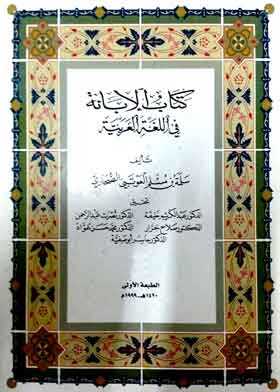 كتاب الإبانة
في اللغة العربية
تأليف
سلمة بن مسلم العوتبي الصحاري
تحقيق
الدكتور عبد الكريم خليفة الدكتور نصرت عبد الرحمن
الدكتور صلاح جرار الدكتور محمد حسن عواد
الدكتور جاسر أبو صفية
الطبعة الأولى
١٤٢٠هـ - ١٩٩٩م